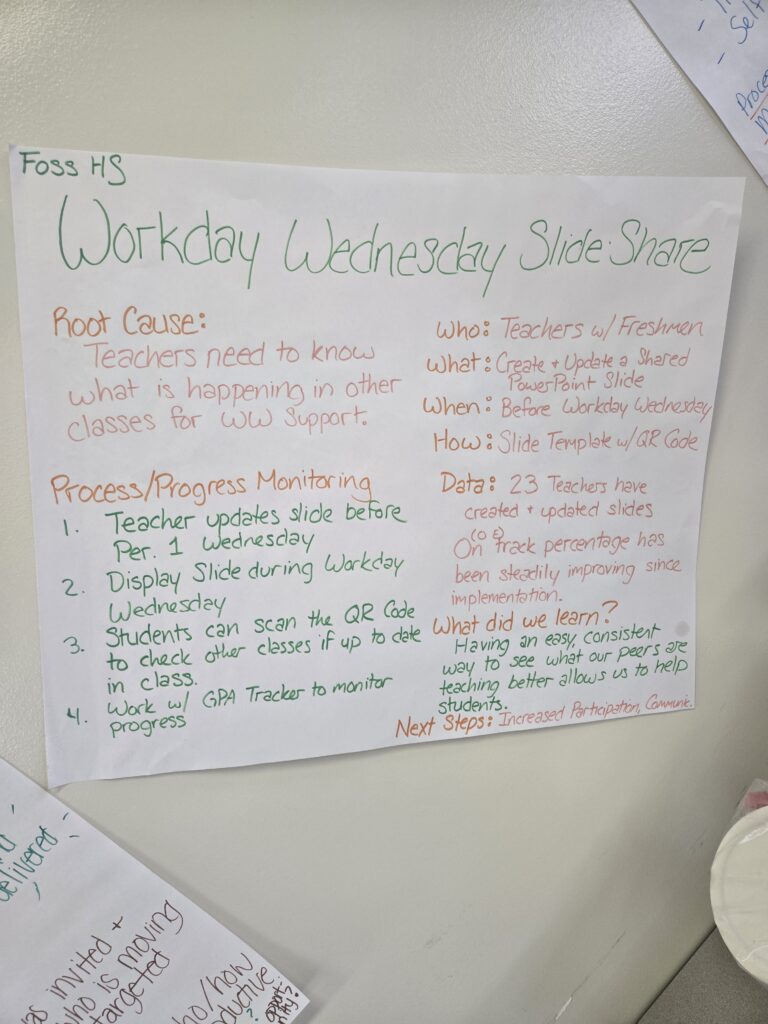 Foss HS
Workday Wednesday Slide Share
Root Cause:
Teachers need to know
what is happening in other
classes for WW Support.
Process/Progress Monitoring
1. Teacher updates slide before
Per. 1 Wednesday
2. Display Slide during Workday
Wednesday
3. Students can scan the QR Code
to check other classes if up to date
in class.
4. Work w/ GPA Tracker to monitor
progress
Who: Teachers w/ Freshmen
What: Create + Update a Shared
PowerPoint Slide
When: Before Workday Wednesday
How: Slide Template w/ QR Code
Data: 23 Teachers have
created + updated slides
(O E)
On track percentage has
been steadily improving since
implementation.
What did we learn?
Having an easy, consistent
way to see what our peers are
teaching better allows us to help
students.
Next Steps: Increased Participation, Communic.
- Self
Proces
delivered
as invited +
who is moving
targeted
ho/how
oductive
?